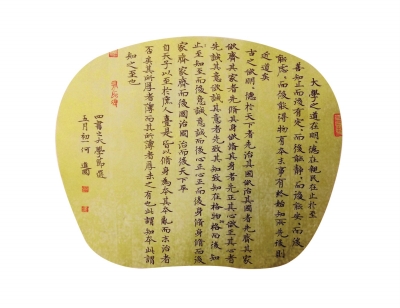 大學之道在明〻德在親民在止於至
善知止而后有定〻而後能靜〻而後能安〻而後
能慮〻而後能得物有本末事有終始知所先後則
近道矣
古之欲明〻德於天下者先治其國欲治其國者先齊其家
欲齊其家者先脩其身欲脩其身者先正其心欲正其心者
先誠其意欲誠其意者先致其知致知在格物格而后知
至知至而后意誠意誠而後心正心正而后身脩身脩而後
家齊家齊而後國治國治而後天下平
自天子以至於庶人壹是皆以脩身為本其本亂而末治者
否矣其所厚者薄而其所薄者厚未之有也此謂知本此謂
知之至也
四書之大學節選
五月初一何